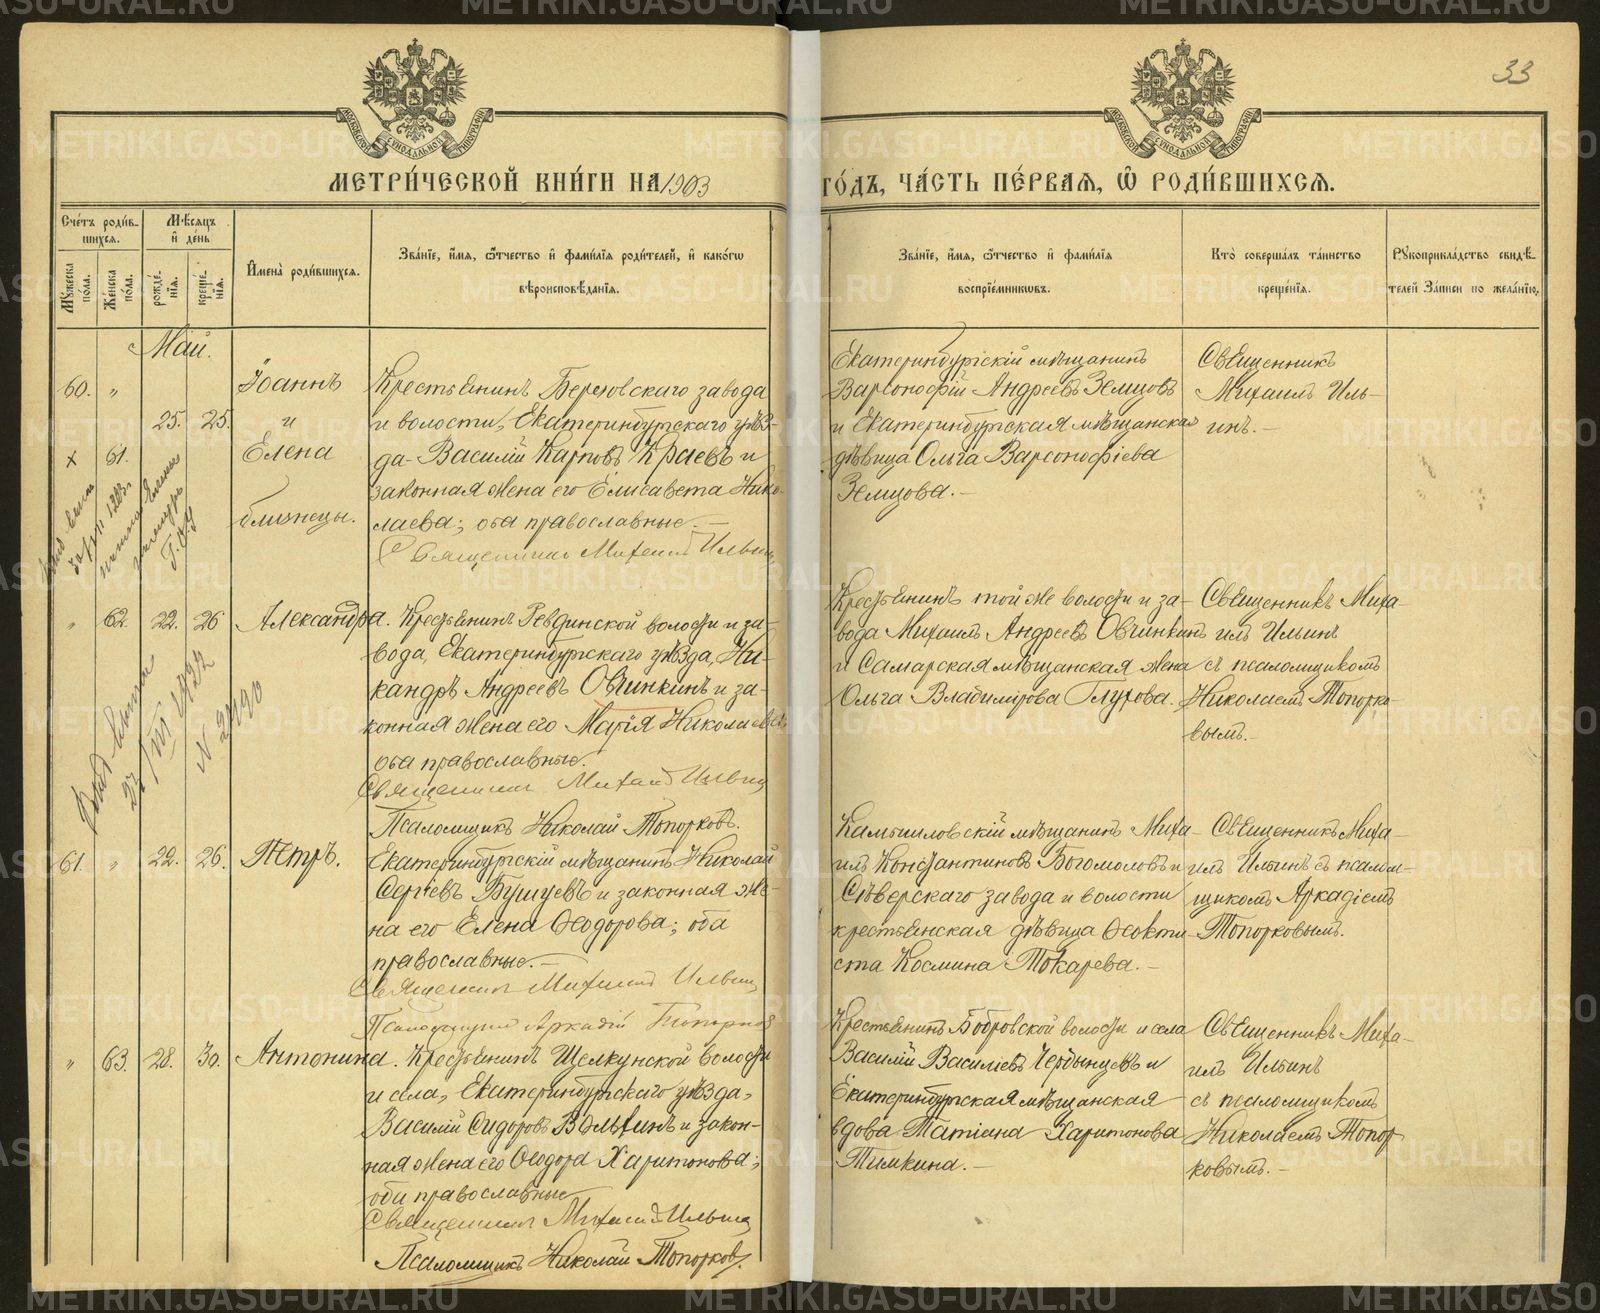 33
МЕТРИ́ЧЕСКОЙ КНИ́ГИ НА 1903 ГО́ДЪ, ЧА́СТЬ ПЕ́РВАЯ, Ѡ РОДИ́ВШИХСЯ.
Сче́тъ роди́вшихся.
Мѣ́сяцъ и́ де́нь
Му́жеска по́ла.
Же́нска по́ла.
рожде́нїя.
креще́нїя.
И҆мена̀ роди́вшихся.
Зва́нїе, и҆́мя, ѻ҆́тчество и҆ фами́лїя роди́телей, и҆ како́гѡ вѣроисповѣ́данїя.
Зва́нїе, и҆́мя, ѻ҆́тчество и҆ фами́лїя воспрїе́мникѡвъ.
Кто̀ соверша́лъ та́инство креще́нїя.
Рꙋкоприкла́дство свидѣ́телей за́писи по жела́нїю.
Май.
60. "
25. 25.
х 61.
Іоаннъ
и
Елена
близнецы.
Крестьянинъ Березовскаго завода
и волости, Екатеринбургскаго уѣз-
да Василій Карповъ Краевъ и
законная жена его Елисавета Нико-
лаева; оба православные.—
Священникъ Михаилъ Ильинъ
Екатеринбургскій мѣщанинъ
Варсонофій Андреевъ Земцовъ
и Екатеринбургская мѣщанская
дѣвица Ольга Варсонофіева
Земцова.—
Священникъ
Михаилъ Иль-
инъ.—
" 62. 22. 26
Александра. Крестьянинъ Ревдинской волости и за-
вода, Екатеринбургскаго уѣзда, Ни-
кандръ Андреевъ Овчинкинъ и за-
конная жена его Марія Николаева
оба православные.
Священникъ Михаилъ Ильинъ
Псаломщикъ Николай Топорковъ.
Крестьянинъ той же волости и за-
вода Михаилъ Андреевъ Овчинкинъ
и Самарская мѣщанская жена
Ольга Владимірова Глухова.
Священникъ Миха-
илъ Ильинъ
съ псаломщикомъ
Николаемъ Топорко-
вымъ.—
27/VII 1922
N 2490
61. " 22. 26.
Петръ.
Екатеринбургскій мѣщанинъ Николай
Сергѣевъ Бушуевъ и законная же-
на его Елена Ѳеодорова; оба
православные.—
Священникъ Михаилъ Ильинъ
Псаломщикъ Аркадій Топорковъ
Камышловскій мѣщанинъ Миха-
илъ Константиновъ Богомоловъ и
Сѣверскаго завода и волости
крестьянская дѣвица Ѳеокти-
ста Космина Токарева.—
Священникъ Миха-
илъ Ильинъ съ псалом-
щикомъ Аркадіемъ
Топорковымъ.
" 63. 28. 30.
Антонина. Крестьянинъ Щелкунской волости
и села, Екатеринбургскаго уѣзда,
Василій Сидоровъ Вольхинъ и закон-
ная жена его Ѳеодора Харитонова;
оби православные
Священникъ Михаилъ Ильинъ
Псаломщикъ Николай Топорковъ.
Крестьянинъ Бобровской волости и села
Василій Васильевъ и
Екатеринбургская мѣщанская
вдова Татіана Харитонова
Тимкина.—
Священникъ Миха-
илъ Ильинъ
съ псаломщикомъ
Николаемъ Топор
ковымъ.—
METRIKI.GASO-URAL.RU